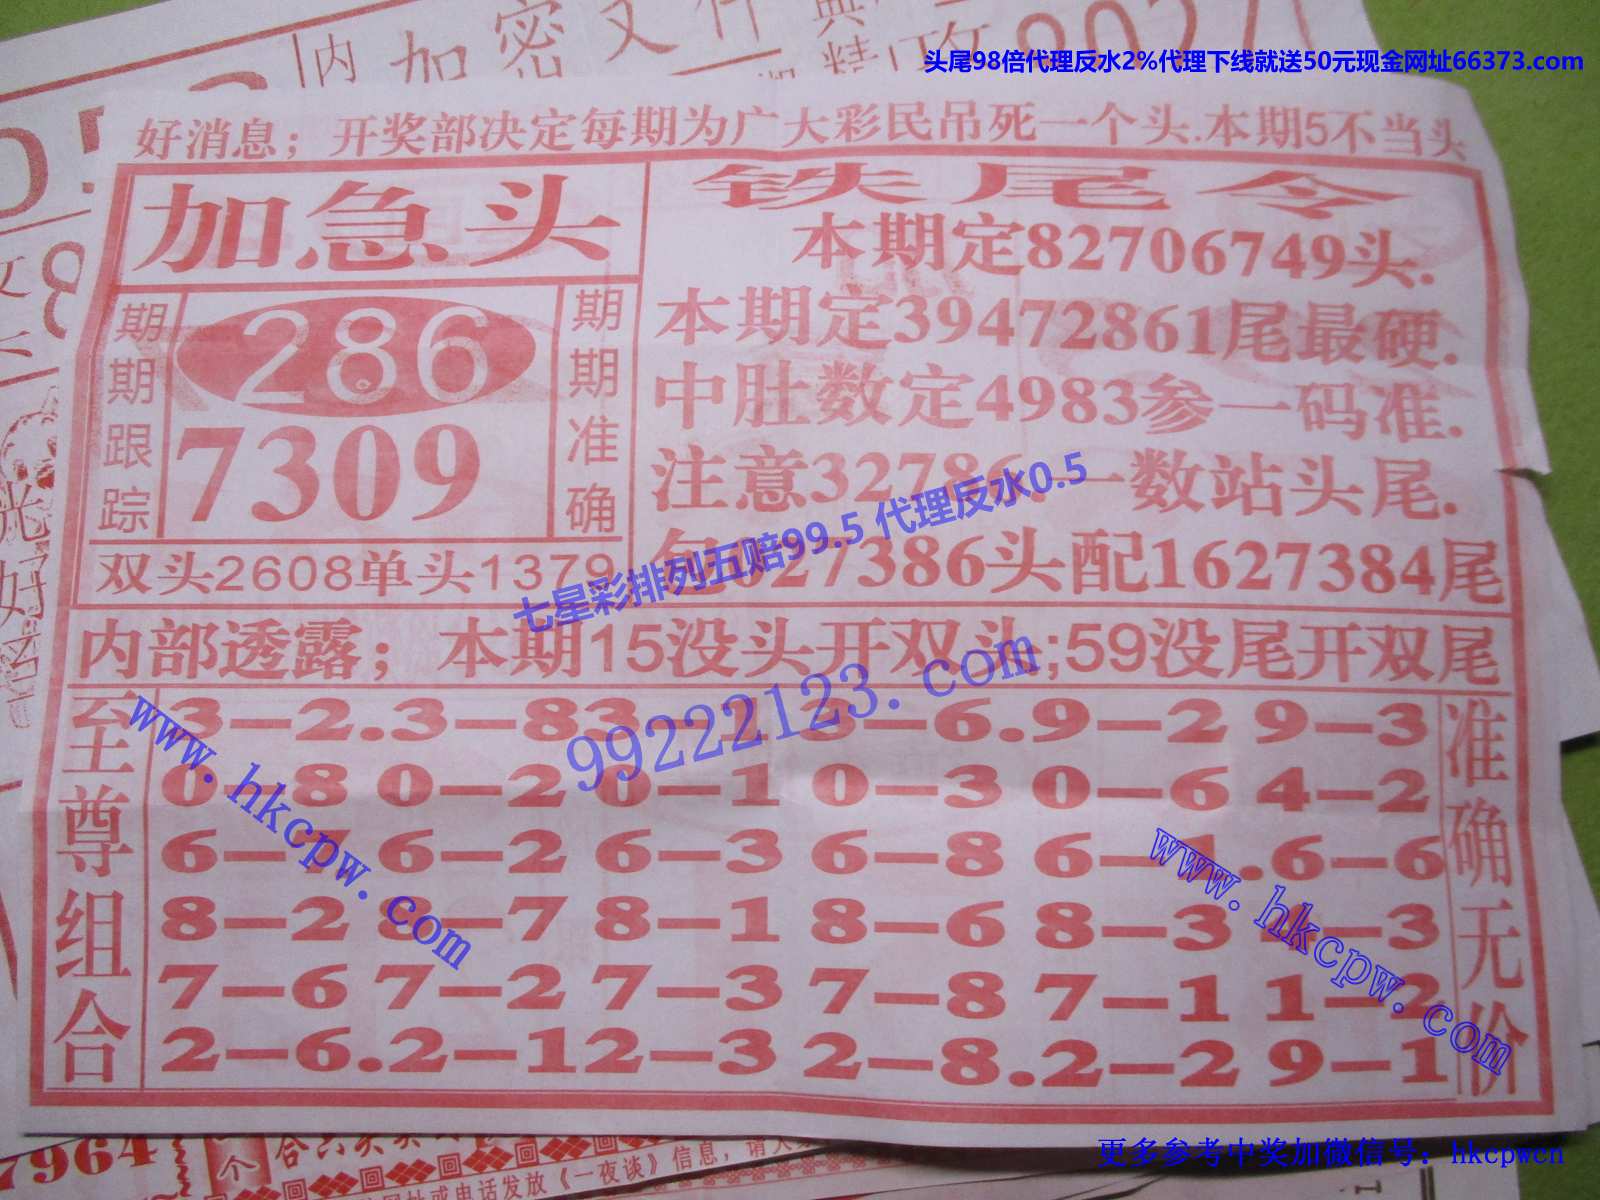 内 加密文件
头尾98倍代理反水2%代理下线就送50元现金网址66373.com
好消息；开奖部决定每期为广大彩民吊死一个头.本期5不当头
加急头
期期跟踪
286
7309
期期准确
双头2608单头1379
铁尾令
本期定82706749头.
本期定39472861尾最硬.
中肚数定4983参一码准.
注意32786一数站头尾.
七星彩排列五赔99.5 代理反水0.5
27386头配1627384尾
内部透露；本期15没头开双头;59没尾开双尾
99222123.com
至尊组合
3—2.3—8 3—1 3—6.9—2 9—3
0—8 0—2 0—1 0—3 0—6 4—2
6— 6—2 6—3 6—8 6—1.6—6
8—2 8—7 8—1 8—6 8—3 —3
7—6 7—2 7—3 7—8 7—1 1—2
2—6.2—1 2—3 2—8.2—2 9—1
准确无价
www.hkcpw.com
www.hkcpw.com
7964
个
信息，请
电话发放《一夜谈》
更多参考中奖加微信号：hkcpwcn